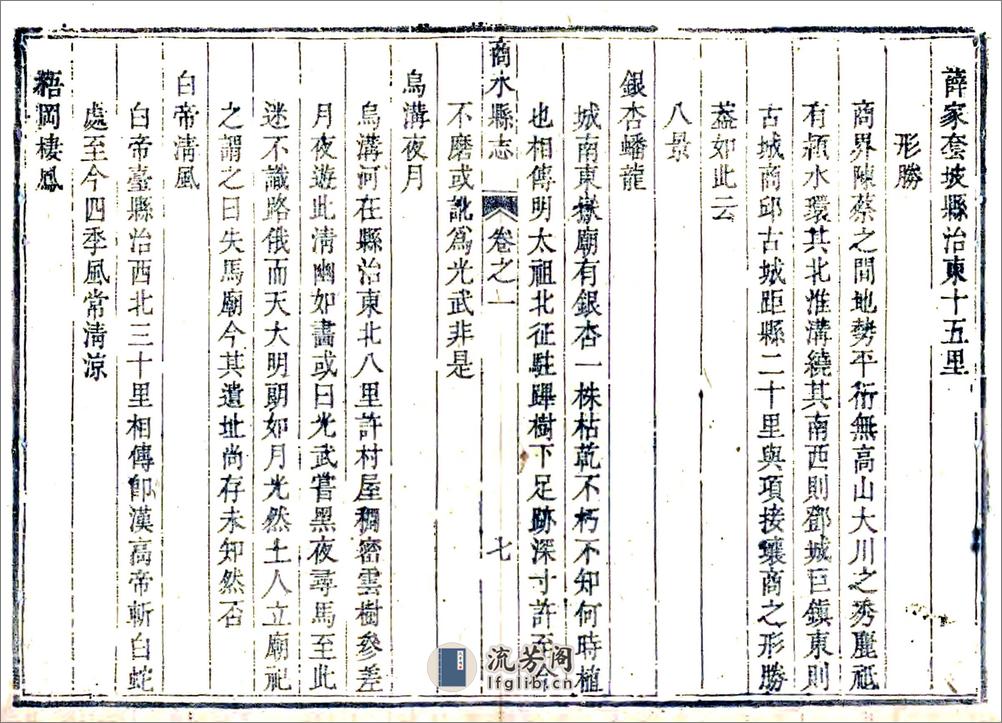 薛家套坡縣治東十五里
形勝
商界陳蔡之間地勢平衍無高山大川之秀麗祗
有潁水環其北淮溝繞其南西則鄧城巨鎮東則
古城商邱古城距縣二十里與項接壤商之形勝
葢如此云
八景
銀杏蟠龍
城南東嶽廟有銀杏一株枯乾不朽不知何時植
也相傳明太祖北征駐蹕樹下足跡深寸許至今
商水縣志
卷之一
七
不磨或訛爲光武非是
烏溝夜月
烏溝河在縣治東北八里許村屋稠密雲樹參差
月夜遊此清幽如畫或曰光武嘗黑夜尋馬至此
迷不識路俄而天大明朗如月光然土人立廟祀
之謂之曰失馬廟今其遺址尚存未知然否
白帝淸風
白帝臺縣治西北三十里相傳卽漢高帝斬白蛇
處至今四季風常淸涼
梧岡棲鳳
流芳阁
lfglib.cn